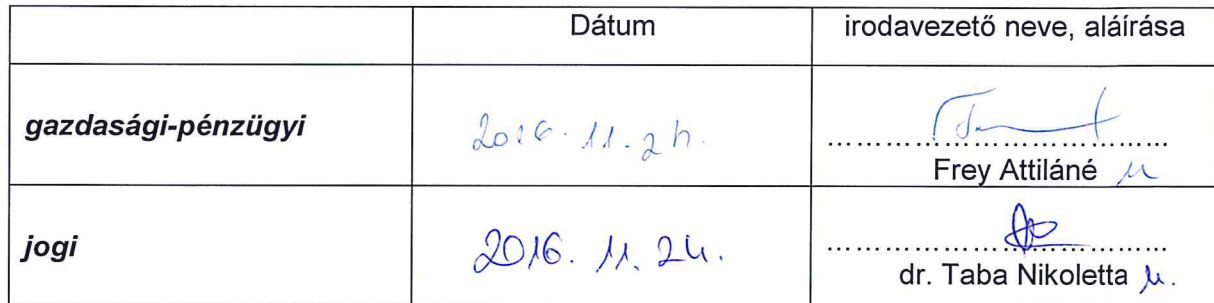 Dátum
irodavezető neve, aláírása
gazdasági-pénzügyi
2016. 11. 24.
..............................
Frey Attiláné
jogi
2016. 11. 24.
..............................
dr. Taba Nikoletta